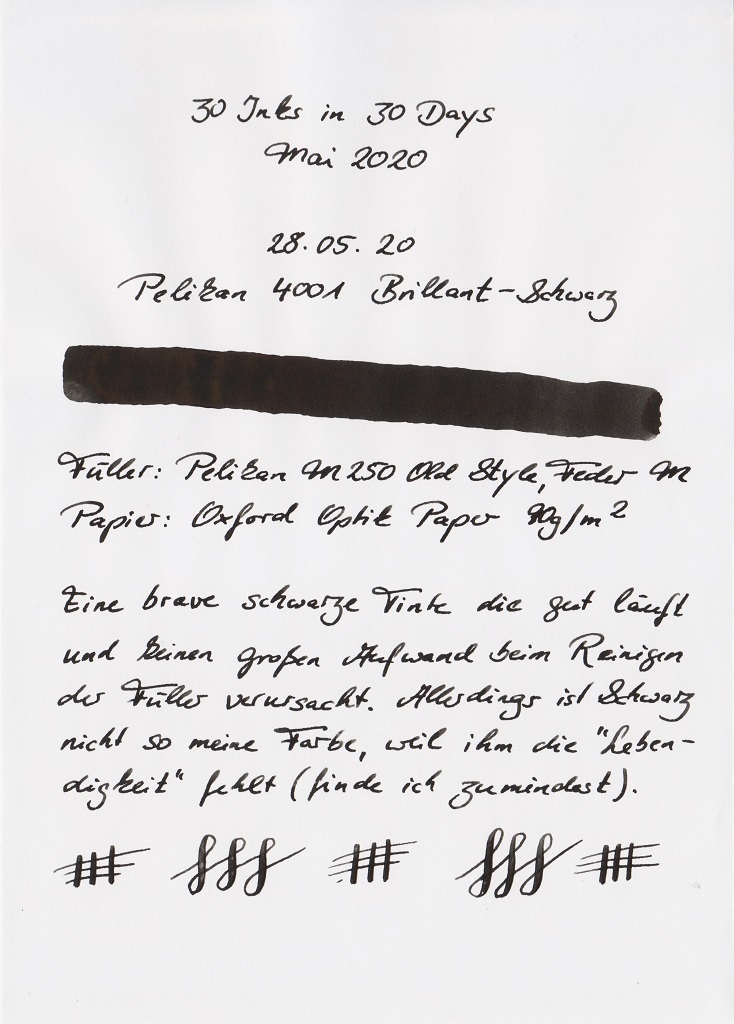 30 Inks in 30 Days
Mai 2020
28.05.20
Pelikan 4001 Brillant-Schwarz
Füller: Pelikan M250 Old Style, Feder M
Papier: Oxford Optik Paper 90g/m²
Eine brave schwarze Tinte die gut läuft
und keinen großen Aufwand beim Reinigen
der Füller verursacht. Allerdings ist Schwarz
nicht so meine Farbe, weil ihm die "Leben-
digkeit" fehlt (finde ich zumindest).